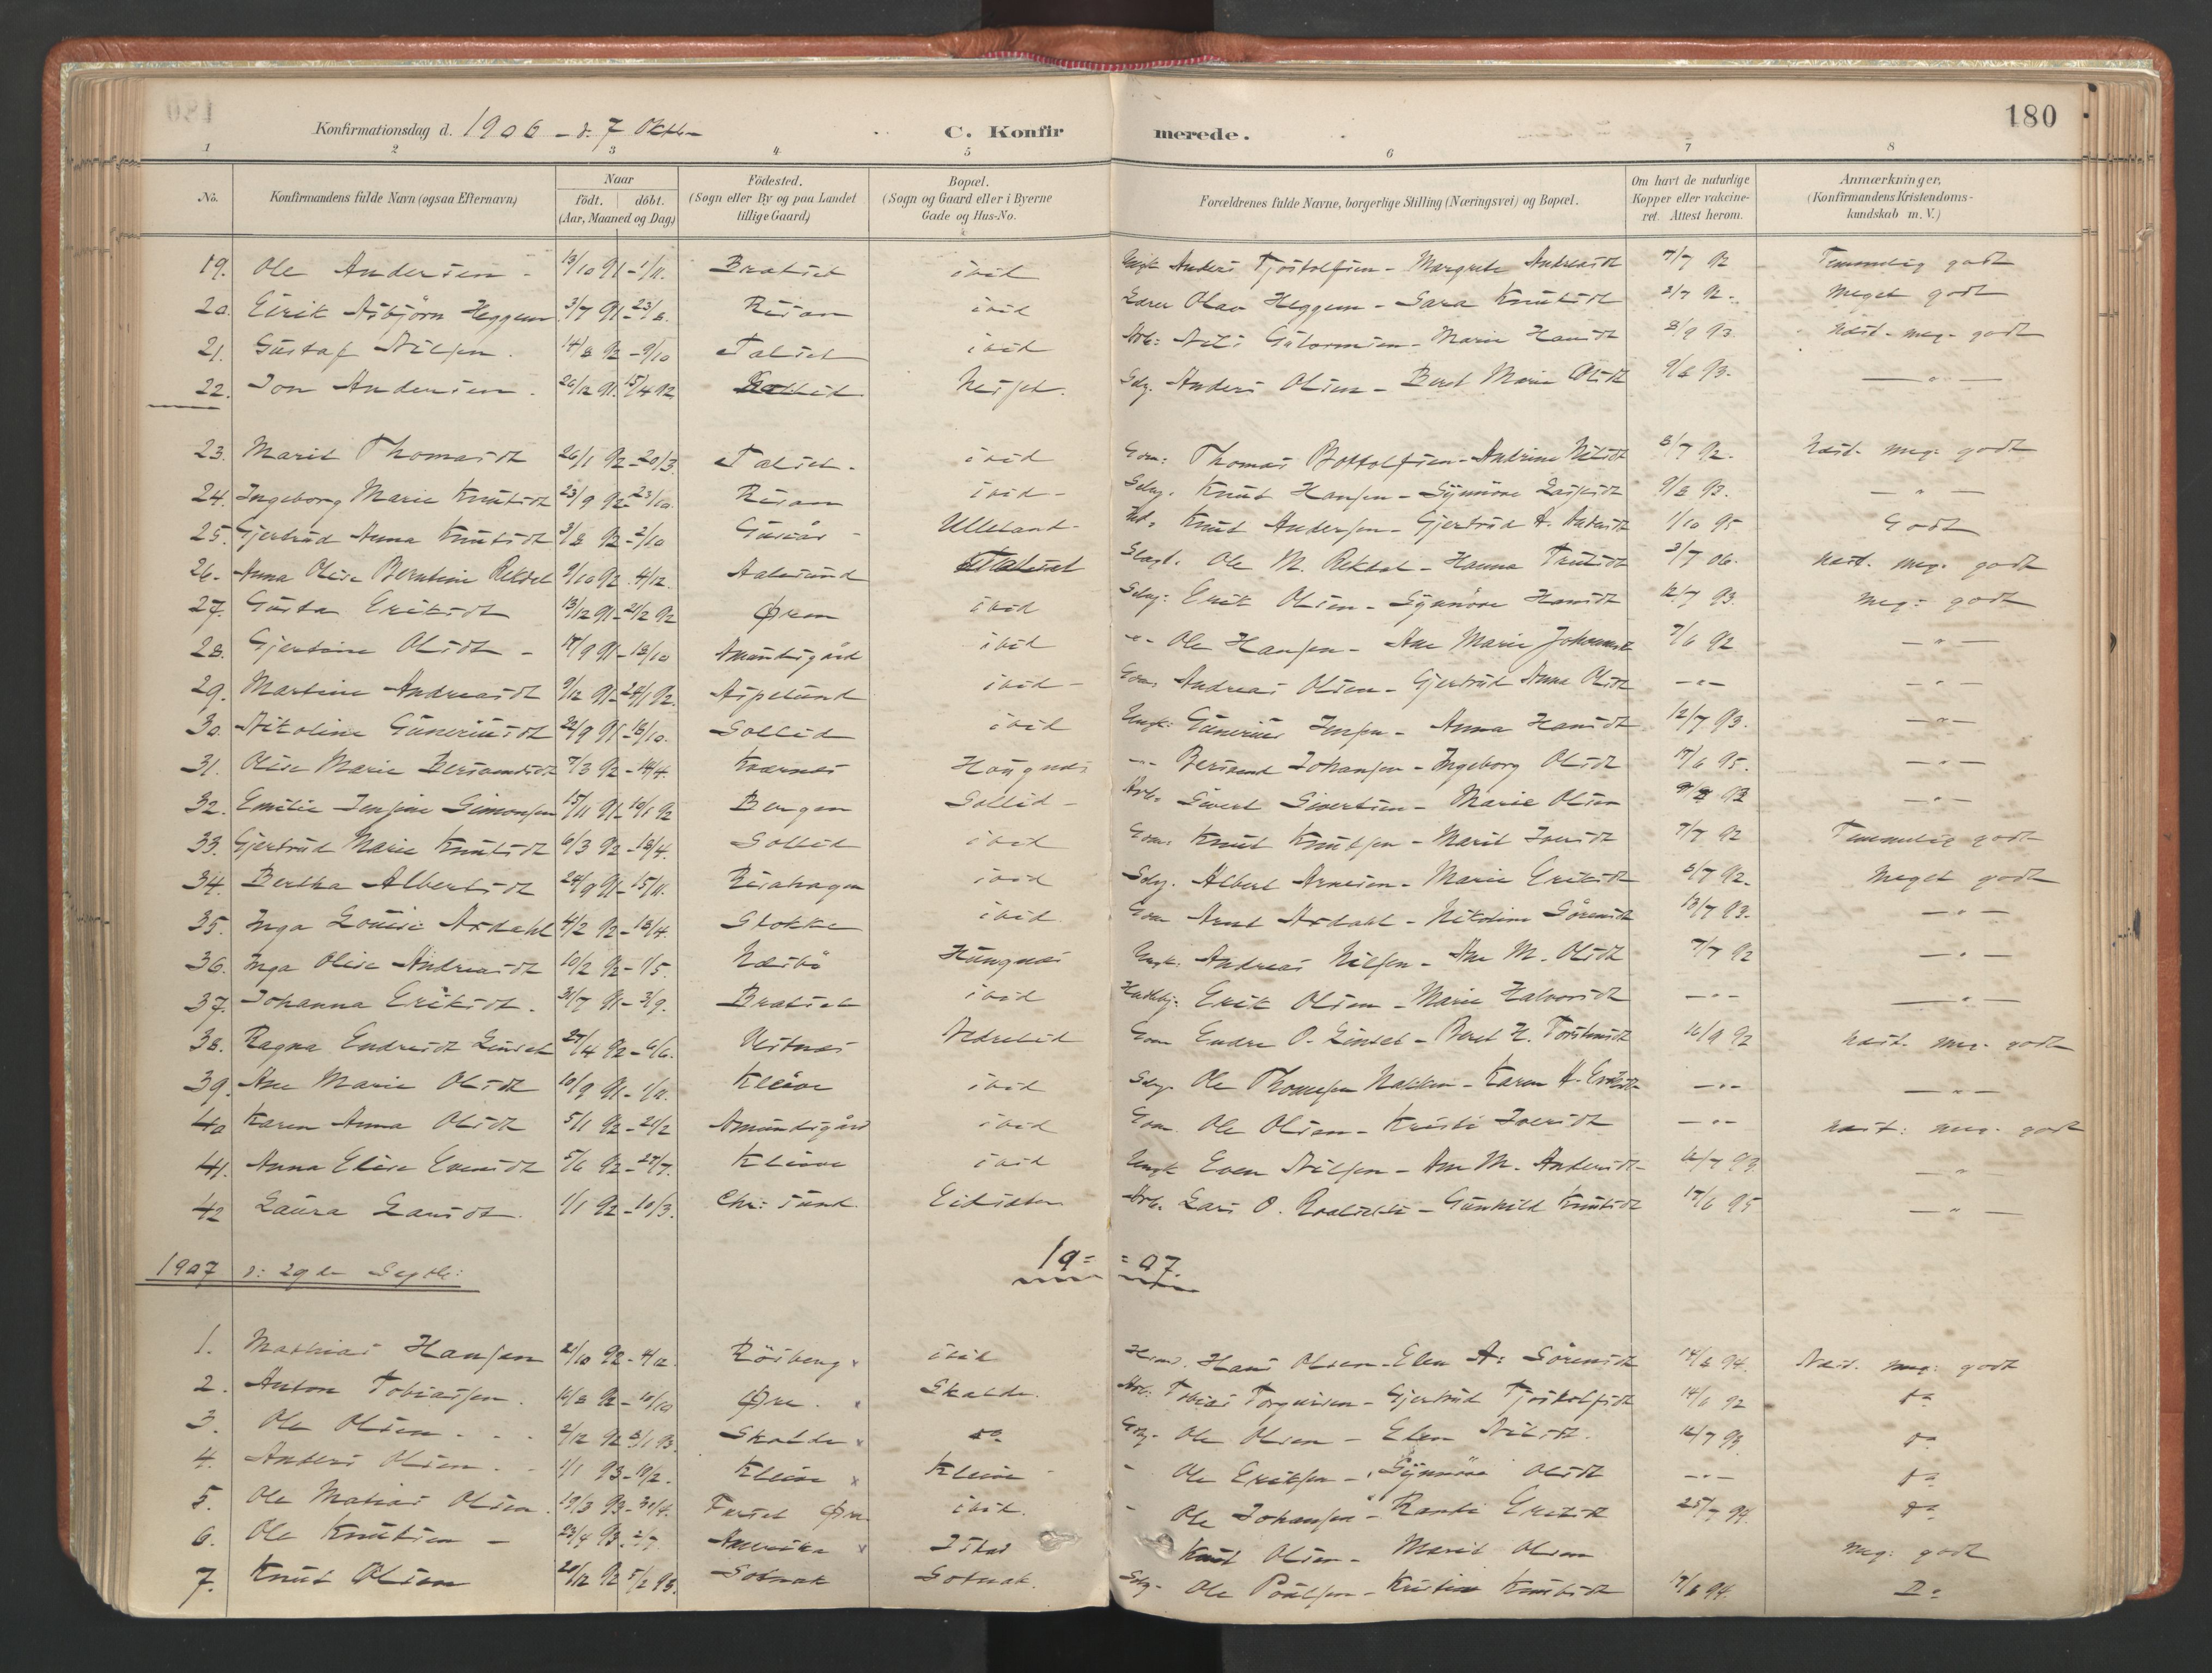 180
Konfirmationsdag d. 1906 - d. 7 Oktb. C. Konfirmerede.
1 2 3 4 5 6 7 8
No. Konfirmandens fulde Navn (ogsaa Efternavn) Naar født. døbt. (Aar, Maaned og Dag) Fødested. (Sogn eller By og paa Landet tillige Gaard) Bopæl. (Sogn og Gaard eller i Byerne Gade og Hus-No. Forældrenes fulde Navne, borgerlige Stilling (Næringsvei) og Bopæl. Om havt de naturlige Kopper eller vakcineret. Attest herom. Anmærkninger, (Konfirmandens Kristendomskundskab m. V.)
19. Ole Andersen - 13/10 91 - 1/11. ibid Anders Tjostolfsen - Margrete Andreasdt 7/7 92 Temmelig godt
20. Eirik Asbjörn Heggem 3/7 91 - 23/8. Risan ibid Lærer Olav Heggem - Sara Knutsdt 2/7 92. Meget godt
21. Gustaf Nilsen. 14/8 92 - 9/10 Talset ibid Arb: Nils Gutormsen - Marie Hansdt 8/9 93 Næst. meg. godt
22. Jon Andersen. 26/12 91. 15/4 92 Neiset. Selv. Anders Olsen - Berit Marie Olsdt 9/8 93. - " -
23. Marit Thomasdt 26/1 92 - 20/3. Talset. ibid Thomas Bottolfsen - Andrine Nilsdt 8/7 92. Næst. meg. godt
24. Ingeborg Marie Knutsdt 23/9 92 - 23/10. Risan ibid - Selvg. Knut Hansen - Synnöve Lassesdt 9/8 93. - " -
25. Gjertrud Anna Knutsdt 3/8 92 - 2/10 Gusiås - Ulleland - Knut Andersen - Gjertrud A. 1/10 95 Godt
26. Anna Olise Berntine Rekdal 9/10 92. 4/12. Aalesund Talset Ole M. Rekdal - Hanna 3/7 06. Næst. meg. godt
27. Gusta Eriksdt 13/12 91 - 21/2 92 Ørem ibid Selvg: Erik Olsen - Synnöve Hansdt 12/7 93. Meg: godt
28. Gjertine Olsdt - 17/9 91 - 18/10 Amundsgård ibid -"- Ole Hansen - Ane Marie Johannsdt 7/6 92 - " -
29. Martine Andreasdt 9/12 91 - 24/1 92. Aspelund ibid - Andreas Olsen - Gjertrud Anna Olsdt -"- - " -
30. Nikoline Guneriusdt 22/9 91 - 18/10. Sollid ibid Gunerius Jensen - Anna Hansdt 12/7 93. - " -
31. Olise Marie Bersvendsdt 7/3 92 - 14/4. Kvarnes Haugnes -"- Bersvend Johansen - Ingeborg Olsdt 17/6 95. - " -
32. Emilie Jensine Simonsen 15/11 91 - 10/1 92 Bergen Sollid - Arb. Sivert Sivertsen - Marie Olsen - " -
33. Gjertrud Marie Knutsdt 6/3 92 - 18/4. Sollid ibid Knut Knutsen - Marit Iversdt 7/7 92 Temmelig godt
34. Bertha Albertsdt 24/9 91 - 15/11. Risahagen ibid Selvg. Albert Arnesen - Marie Eriksdt 2/7 92. Meget godt
35. Inga Louise Årdahl 4/2 92 - 18/4. Stokke ibid Arnt Årdahl - Nikoline Sörensdt 13/7 93. - " -
36. Inga Olise Andreasdt 10/2 92 - 1/5. Næsbö Haugnes Andreas Nilsen - Ane M. Olsdt 7/7 92 - " -
37. Johanna Eriksdt. 31/7 91 - 3/9. ibid Erik Olsen - Marie Halvorsdt -"- - " -
38. Ragna Endresdt Linset 27/4 92 - 6/6. Vestnes Nedrelid Endre O. Linset - Beret H. Torstensdt 16/9 92 Næst. meg. godt
39. Ane Marie Olsdt 10/9 91 - 1/11. Kleive ibid Selvg. Ole Thomesen Nakken - Karen H. Eriksdt -"- - " -
40 Karen Anna Olsdt 5/1 92 - 21/2 Amundsgård ibid Ole Olsen - Kristi Iversdt -"- Næst: meg. godt
41. Anna Elise Evensdt 5/6 92 - 27/7. Kleive ibid Even Nilsen - Ane M. Andersdt - 12/7 93. - " -
42 Laura Larsdt. 1/1 92 - 10/3. Chr: sund. Arb. Lars O. - Gunhild Knutsdt 17/6 95 - " -
1907 d: 29de Septbr: 19= =07.
1. Mathias Hansen 21/10 92 - 4/12. Rösberg ibid Hans Olsen - Elen A: Sörensdt 14/8 94. Næst. meg: godt
2. Anton Tobiassen. 16/8 92 - 10/10 Øre. Skalde. Arb: Tobias Torgersen - Gjertrud Tjostolfsdt 14/6 92 do
3. Ole Olsen - - - 2/12 92 8/1 93. Skalde do Ole Olsen - Elen Nilsdt. 12/7 93 do
4. Anders Olsen - - 1/1 93 - 19/2. Kleive Kleive - Ole Eriksen - Synnöve Olsdt -"- do
5. Ole Matias Olsen. 19/3 93 - 31/4. Øre ibid. - Ole Johansen - Eriksdt 25/7 94. do
6. Ole Knutsen - 23/4 93. 2/7. Amerika - Knut Olsen - Marit Olsen Meg: godt
7. Knut Olsen 20/12 92 5/2 93. Solnak Solnak. Selvg. Ole Poulsen - Kristine Knutsdt 17/8 94. Do